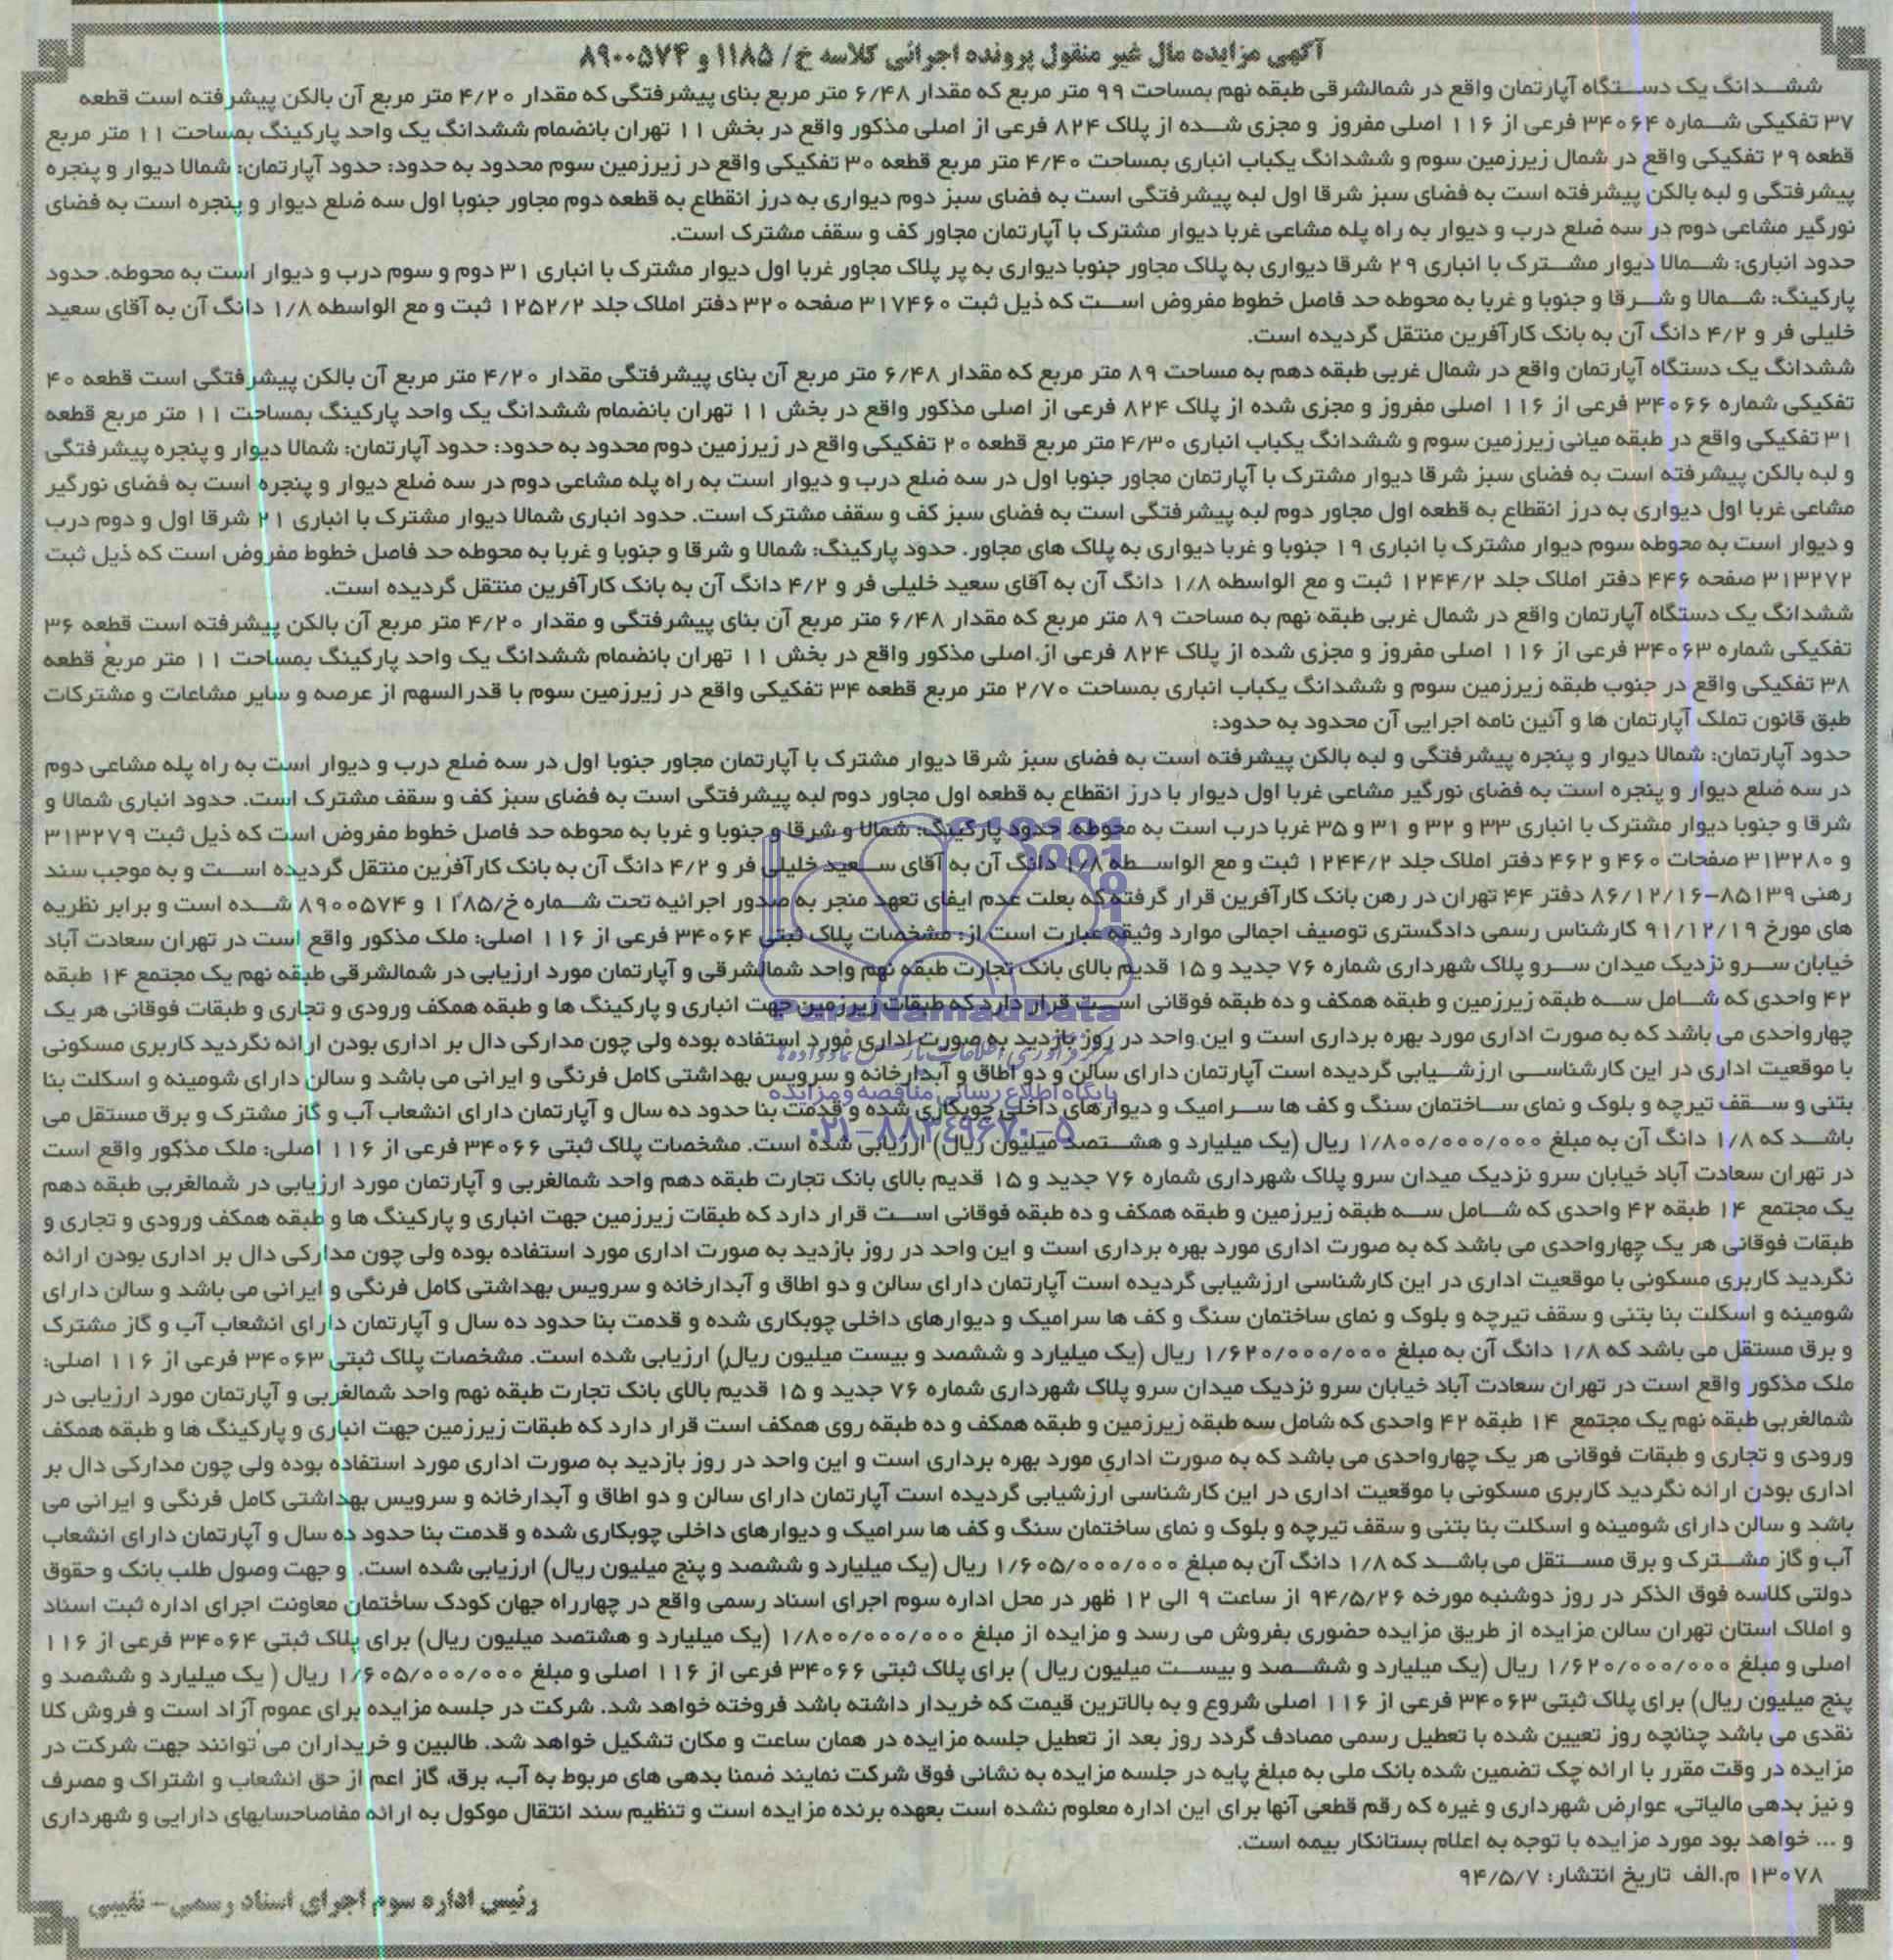 آگهی مزایده مال غیر منقول پرونده اجرائی کلاسه خ/ ۱۱۸۵ و ۸۹۰۰۵۷۴
ششدانگ یک دستگاه آپارتمان واقع در شمالشرقی طبقه نهم بمساحت ۹۹ متر مربع که مقدار ۶/۴۸ متر مربع بنای پیشرفتگی که مقدار ۴/۲۰ متر مربع آن بالکن پیشرفته است قطعه
۳۷ تفکیکی شماره ۳۴۰۶۴ فرعی از ۱۱۶ اصلی مفروز و مجزی شده از پلاک ۸۲۴ فرعی از اصلی مذکور واقع در بخش ۱۱ تهران بانضمام ششدانگ یک واحد پارکینگ بمساحت ۱۱ متر مربع
قطعه ۲۹ تفکیکی واقع در شمال زیرزمین سوم و ششدانگ یکباب انباری بمساحت ۴/۴۰ متر مربع قطعه ۳۰ تفکیکی واقع در زیرزمین سوم محدود به حدود: حدود آپارتمان: شمالا دیوار و پنجره
پیشرفتگی و لبه بالکن پیشرفته است به فضای سبز شرقا اول لبه پیشرفتگی است به فضای سبز دوم دیواری به درز انقطاع به قطعه دوم مجاور جنوبا اول سه ضلع دیوار و پنجره است به فضای
نورگیر مشاعی دوم در سه ضلع درب و دیوار به راه پله مشاعی غربا دیوار مشترک با آپارتمان مجاور کف و سقف مشترک است.
حدود انباری: شمالا دیوار مشترک با انباری ۲۹ شرقا دیواری به پلاک مجاور جنوبا دیواری به پر پلاک مجاور غربا اول دیوار مشترک با انباری ۳۱ دوم و سوم درب و دیوار است به محوطه. حدود
پارکینگ: شمالا و شرقا و جنوبا و غربا به محوطه حد فاصل خطوط مفروض است که ذیل ثبت ۳۱۷۴۶۰ صفحه ۳۲۰ دفتر املاک جلد ۱۲۵۲/۲ ثبت و مع الواسطه ۱/۸ دانگ آن به آقای سعید
خلیلی فر و ۴/۲ دانگ آن به بانک کارآفرین منتقل گردیده است.
ششدانگ یک دستگاه آپارتمان واقع در شمال غربی طبقه دهم به مساحت ۸۹ متر مربع که مقدار ۶/۴۸ متر مربع آن بنای پیشرفتگی مقدار ۴/۲۰ متر مربع آن بالکن پیشرفتگی است قطعه ۴۰
تفکیکی شماره ۳۴۰۶۶ فرعی از ۱۱۶ اصلی مفروز و مجزی شده از پلاک ۸۲۴ فرعی از اصلی مذکور واقع در بخش ۱۱ تهران بانضمام ششدانگ یک واحد پارکینگ بمساحت ۱۱ متر مربع قطعه
۳۱ تفکیکی واقع در طبقه میانی زیرزمین سوم و ششدانگ یکباب انباری ۴/۳۰ متر مربع قطعه ۲۰ تفکیکی واقع در زیرزمین دوم محدود به حدود: حدود آپارتمان: شمالا دیوار و پنجره پیشرفتگی
و لبه بالکن پیشرفته است به فضای سبز شرقا دیوار مشترک با آپارتمان مجاور جنوبا اول در سه ضلع درب و دیوار است به راه پله مشاعی دوم در سه ضلع دیوار و پنجره است به فضای نورگیر
مشاعی غربا اول دیواری به درز انقطاع به قطعه اول مجاور دوم لبه پیشرفتگی است به فضای سبز کف و سقف مشترک است. حدود انباری شمالا دیوار مشترک با انباری ۲۱ شرقا اول و دوم درب
و دیوار است به محوطه سوم دیوار مشترک با انباری ۱۹ جنوبا و غربا دیواری به پلاک های مجاور. حدود پارکینگ: شمالا و شرقا و جنوبا و غربا به محوطه حد فاصل خطوط مفروض است که ذیل ثبت
۳۱۳۲۷۲ صفحه ۴۴۶ دفتر املاک جلد ۱۲۴۴/۲ ثبت و مع الواسطه ۱/۸ دانگ آن به آقای سعید خلیلی فر و ۴/۲ دانگ آن به بانک کارآفرین منتقل گردیده است.
ششدانگ یک دستگاه آپارتمان واقع در شمال غربی طبقه نهم به مساحت ۸۹ متر مربع که مقدار ۶/۴۸ متر مربع آن بنای پیشرفتگی و مقدار ۴/۲۰ متر مربع آن بالکن پیشرفته است قطعه ۳۶
تفکیکی شماره ۳۴۰۶۳ فرعی از ۱۱۶ اصلی مفروز و مجزی شده از پلاک ۸۲۴ فرعی از اصلی مذکور واقع در بخش ۱۱ تهران بانضمام ششدانگ یک واحد پارکینگ بمساحت ۱۱ متر مربع قطعه
۳۸ تفکیکی واقع در جنوب طبقه زیرزمین سوم و ششدانگ یکباب انباری بمساحت ۲/۷۰ متر مربع قطعه ۳۴ تفکیکی واقع در زیرزمین سوم با قدرالسهم از عرصه و سایر مشاعات و مشترکات
طبق قانون تملک آپارتمان ها و آئین نامه اجرایی آن محدود به حدود:
حدود آپارتمان: شمالا دیوار و پنجره پیشرفتگی و لبه بالکن پیشرفته است به فضای سبز شرقا دیوار مشترک با آپارتمان مجاور جنوبا اول در سه ضلع درب و دیوار است به راه پله مشاعی دوم
در سه ضلع دیوار و پنجره است به فضای نورگیر مشاعی غربا اول دیوار با درز انقطاع به قطعه اول مجاور دوم لبه پیشرفتگی است به فضای سبز کف و سقف مشترک است. حدود انباری شمالا و
شرقا و جنوبا دیوار مشترک با انباری ۳۳ و ۳۲ و ۳۱ و ۳۵ غربا درب است به محوطه. حدود پارکینگ: شمالا و شرقا و جنوبا و غربا به محوطه حد فاصل خطوط مفروض است که ذیل ثبت ۳۱۳۲۷۹
و ۳۱۳۲۸۰ صفحات ۴۶۰ و ۴۶۲ دفتر املاک جلد ۱۲۴۴/۲ ثبت و مع الواسطه ۱/۸ دانگ آن به آقای سعید خلیلی فر و ۴/۲ دانگ آن به بانک کارآفرین منتقل گردیده است و به موجب سند
رهنی ۸۵۱۳۹-۸۶/۱۲/۱۶ دفتر ۴۴ تهران در رهن بانک کارآفرین قرار گرفته که بعلت عدم ایفای تعهد منجر به صدور اجرائیه تحت شماره خ/۱۱۸۵ و ۸۹۰۰۵۷۴ شده است و برابر نظریه
های مورخ ۹۱/۱۲/۱۹ کارشناس رسمی دادگستری توصیف اجمالی موارد وثیقه عبارت است از: مشخصات پلاک ثبتی ۳۴۰۶۴ فرعی از ۱۱۶ اصلی: ملک مذکور واقع است در تهران سعادت آباد
خیابان سرو نزدیک میدان سرو پلاک شهرداری شماره ۷۶ جدید و ۱۵ قدیم بالای بانک تجارت طبقه نهم واحد شمالشرقی و آپارتمان مورد ارزیابی در شمالشرقی طبقه نهم یک مجتمع ۱۴ طبقه
۴۲ واحدی که شامل سه طبقه زیرزمین و طبقه همکف و ده طبقه فوقانی است قرار دارد که طبقات زیرزمین جهت انباری و پارکینگ ها و طبقه همکف ورودی و تجاری و طبقات فوقانی هر یک
چهارواحدی می باشد که به صورت اداری مورد بهره برداری است و این واحد در روز بازدید به صورت اداری مورد استفاده بوده ولی چون مدارکی دال بر اداری بودن ارائه نگردید کاربری مسکونی
با موقعیت اداری در این کارشناسی ارزشیابی گردیده است آپارتمان دارای سالن و دو اطاق و آبدارخانه و سرویس بهداشتی کامل فرنگی و ایرانی می باشد و سالن دارای شومینه و اسکلت بنا
بتنی و سقف تیرچه و بلوک و نمای ساختمان سنگ و کف ها سرامیک و دیوارهای داخلی چوبکاری شده و قدمت بنا حدود ده سال و آپارتمان دارای انشعاب آب و گاز مشترک و برق مستقل می
باشد که ۱/۸ دانگ آن به مبلغ ۱/۸۰۰/۰۰۰/۰۰۰ ریال (یک میلیارد و هشتصد میلیون ریال) ارزیابی شده است. مشخصات پلاک ثبتی ۳۴۰۶۶ فرعی از ۱۱۶ اصلی: ملک مذکور واقع است
در تهران سعادت آباد خیابان سرو نزدیک میدان سرو پلاک شهرداری شماره ۷۶ جدید و ۱۵ قدیم بالای بانک تجارت طبقه دهم واحد شمالغربی و آپارتمان مورد ارزیابی در شمالغربی طبقه دهم
یک مجتمع ۱۴ طبقه ۴۲ واحدی که شامل سه طبقه زیرزمین و طبقه همکف و ده طبقه فوقانی است قرار دارد که طبقات زیرزمین جهت انباری و پارکینگ ها و طبقه همکف ورودی و تجاری و
طبقات فوقانی هر یک چهارواحدی می باشد که به صورت اداری مورد بهره برداری است و این واحد در روز بازدید به صورت اداری مورد استفاده بوده ولی چون مدارکی دال بر اداری بودن ارائه
نگردید کاربری مسکونی با موقعیت اداری در این کارشناسی ارزشیابی گردیده است آپارتمان دارای سالن و دو اطاق و آبدارخانه و سرویس بهداشتی کامل فرنگی و ایرانی می باشد و سالن دارای
شومینه و اسکلت بنا بتنی و سقف تیرچه و بلوک و نمای ساختمان سنگ و کف ها سرامیک و دیوارهای داخلی چوبکاری شده و قدمت بنا حدود ده سال و آپارتمان دارای انشعاب آب و گاز مشترک
و برق مستقل می باشد که ۱/۸ دانگ آن به مبلغ ۱/۶۲۰/۰۰۰/۰۰۰ ریال (یک میلیارد و ششصد و بیست میلیون ریال) ارزیابی شده است. مشخصات پلاک ثبتی ۳۴۰۶۳ فرعی از ۱۱۶ اصلی:
ملک مذکور واقع است در تهران سعادت آباد خیابان سرو نزدیک میدان سرو پلاک شهرداری شماره ۷۶ جدید و ۱۵ قدیم بالای بانک تجارت طبقه نهم واحد شمالغربی و آپارتمان مورد ارزیابی در
شمالغربی طبقه نهم یک مجتمع ۱۴ طبقه ۴۲ واحدی که شامل سه طبقه زیرزمین و طبقه همکف و ده طبقه روی همکف است قرار دارد که طبقات زیرزمین جهت انباری و پارکینگ ها و طبقه همکف
ورودی و تجاری و طبقات فوقانی هر یک چهارواحدی می باشد که به صورت اداری مورد بهره برداری است و این واحد در روز بازدید به صورت اداری مورد استفاده بوده ولی چون مدارکی دال بر
اداری بودن ارائه نگردید کاربری مسکونی با موقعیت اداری در این کارشناسی ارزشیابی گردیده است آپارتمان دارای سالن و دو اطاق و آبدارخانه و سرویس بهداشتی کامل فرنگی و ایرانی می
باشد و سالن دارای شومینه و اسکلت بنا بتنی و سقف تیرچه و بلوک و نمای ساختمان سنگ و کف ها سرامیک و دیوارهای داخلی چوبکاری شده و قدمت بنا حدود ده سال و آپارتمان دارای انشعاب
آب و گاز مشترک و برق مستقل می باشد که ۱/۸ دانگ آن به مبلغ ۱/۶۰۵/۰۰۰/۰۰۰ ریال (یک میلیارد و ششصد و پنج میلیون ریال) ارزیابی شده است. و جهت وصول طلب بانک و حقوق
دولتی کلاسه فوق الذکر در روز دوشنبه مورخه ۹۴/۵/۲۶ از ساعت ۹ الی ۱۲ ظهر در محل اداره سوم اجرای اسناد رسمی واقع در چهارراه جهان کودک ساختمان معاونت اجرای اداره ثبت اسناد
و املاک استان تهران سالن مزایده از طریق مزایده حضوری بفروش می رسد و مزایده از مبلغ ۱/۸۰۰/۰۰۰/۰۰۰ (یک میلیارد و هشتصد میلیون ریال) برای پلاک ثبتی ۳۴۰۶۴ فرعی از ۱۱۶
اصلی و مبلغ ۱/۶۲۰/۰۰۰/۰۰۰ ریال (یک میلیارد و ششصد و بیست میلیون ریال ) برای پلاک ثبتی ۳۴۰۶۶ فرعی از ۱۱۶ اصلی و مبلغ ۱/۶۰۵/۰۰۰/۰۰۰ ریال ( یک میلیارد و ششصد و
پنج میلیون ریال) برای پلاک ثبتی ۳۴۰۶۳ فرعی از ۱۱۶ اصلی شروع و به بالاترین قیمت که خریدار داشته باشد فروخته خواهد شد. شرکت در جلسه مزایده برای عموم آزاد است و فروش کلا
نقدی می باشد چنانچه روز تعیین شده با تعطیل رسمی مصادف گردد روز بعد از تعطیل جلسه مزایده در همان ساعت و مکان تشکیل خواهد شد. طالبین و خریداران می توانند جهت شرکت در
مزایده در وقت مقرر با ارائه چک تضمین شده بانک ملی به مبلغ پایه در جلسه مزایده به نشانی فوق شرکت نمایند ضمنا بدهی های مربوط به آب، برق، گاز اعم از حق انشعاب و اشتراک و مصرف
و نیز بدهی مالیاتی، عوارض شهرداری و غیره که رقم قطعی آنها برای این اداره معلوم نشده است بعهده برنده مزایده است و تنظیم سند انتقال موکول به ارائه مفاصاحسابهای دارایی و شهرداری
و ... خواهد بود مورد مزایده با توجه به اعلام بستانکار بیمه است.
۱۳۰۷۸ م.الف تاریخ انتشار: ۹۴/۵/۷
رئیس اداره سوم اجرای اسناد رسمی – نقیبی
ParsNamadData
پایگاه اطلاع رسانی مناقصه و مزایده
۰۲۱-۸۸۳۴۹۶۷۰-۵